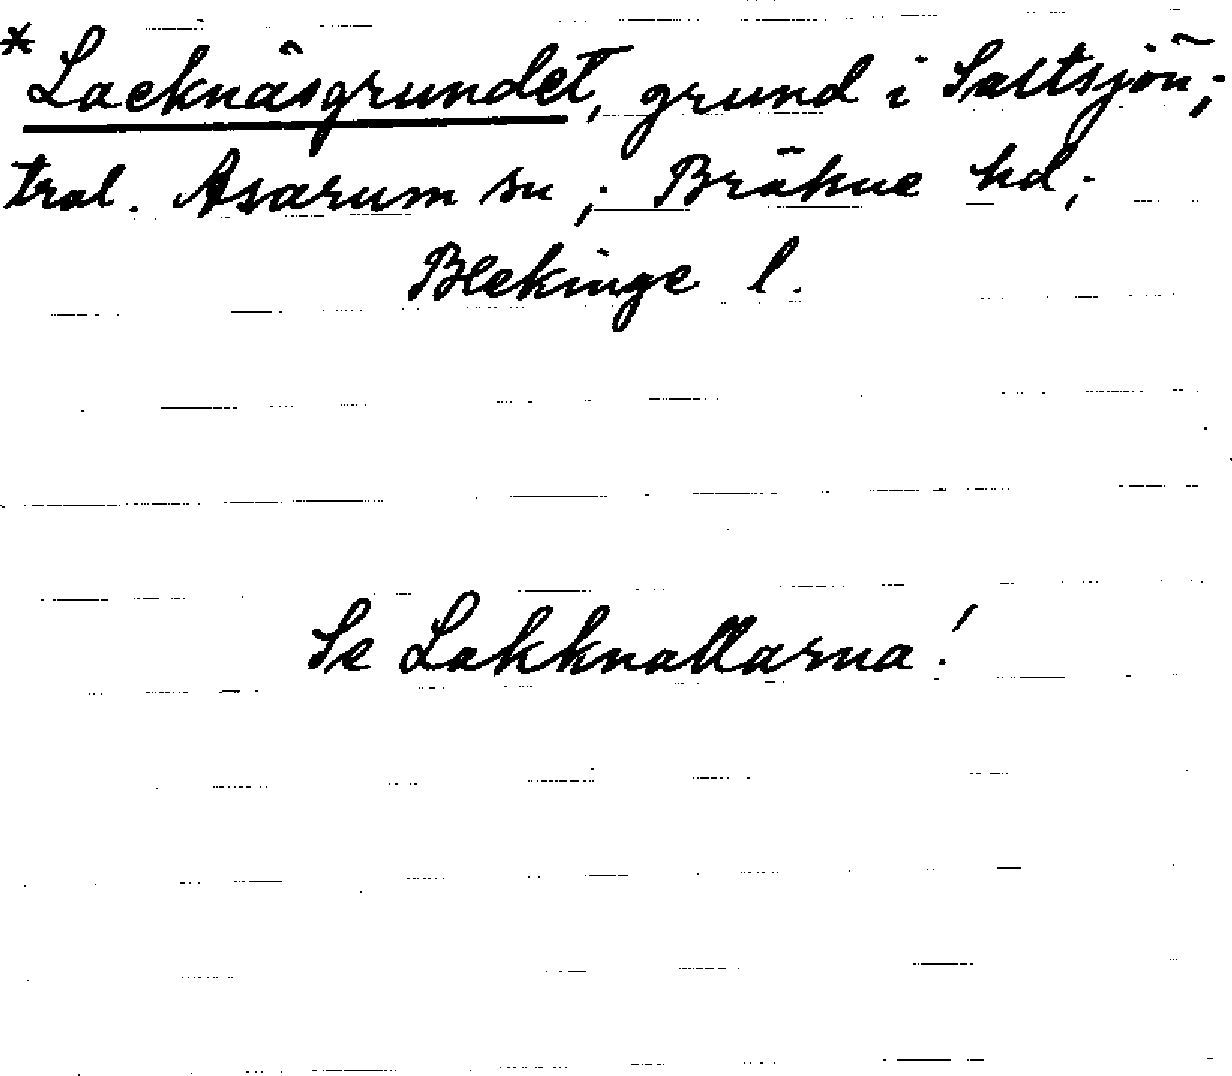 * Lacknäsgrundet, grund i Saltsjön;
tral. Asarum sn; Bräkne hd;
Blekinge l.
Se Lakknallarna!